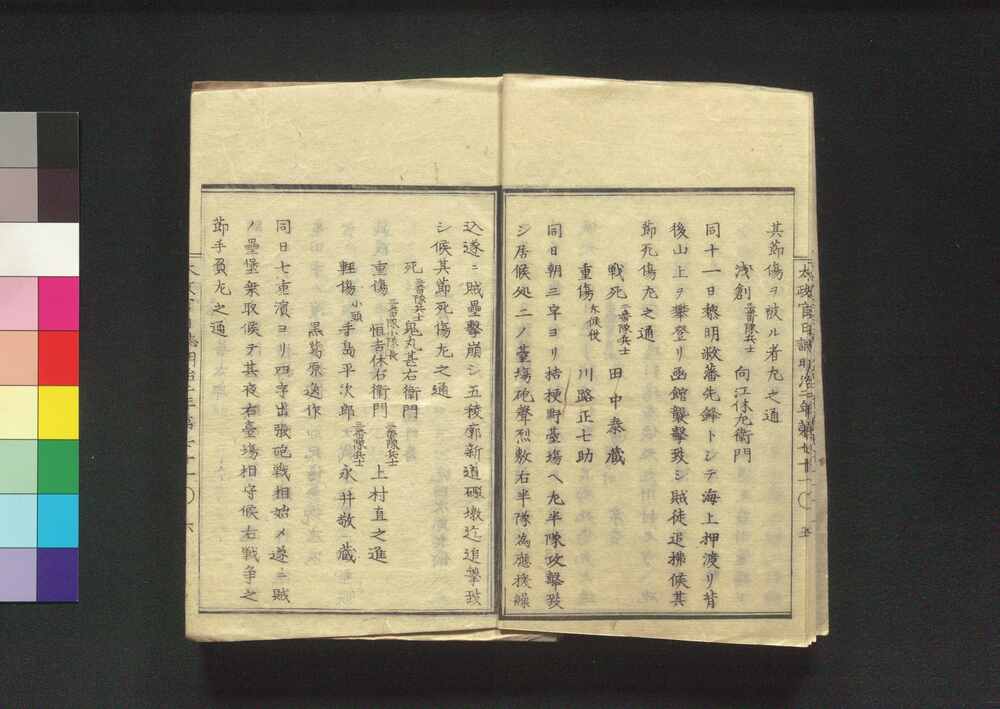 其節傷ヲ被ル者左之通
浅創 二番隊兵士 向江休左衛門
同十一日黎明敝藩先鋒トシテ海上押渡リ背
後山上ヲ攀登リ函館襲撃致シ賊徒追拂候其
節死傷左之通
戦死 二番隊兵士 田中泰蔵
重傷 斥候役 川路正七助
同日朝三字ヨリ桔梗野臺場ヘ左半隊攻撃致
シ居候処二ノ臺場砲聲烈敷右半隊為應援繰
太政官日誌明治二年第七十一 〇 五
込遂ニ賊壘撃崩シ五稜廓新道礟墩迄追撃致
シ候其節死傷左之通
死 二番隊兵士 鬼丸甚右衛門
重傷 二番隊小隊長 恒吉休右衛門 一番隊兵士 上村直之進
軽傷 小頭 手島平次郎 二番隊兵士 永井敬蔵
黒葛原逸作
同日七重濱ヨリ四字出張砲戦相始メ遂ニ賊
ノ壘堡乗取候テ其夜右臺場相守候右戦争之
節手負左之通